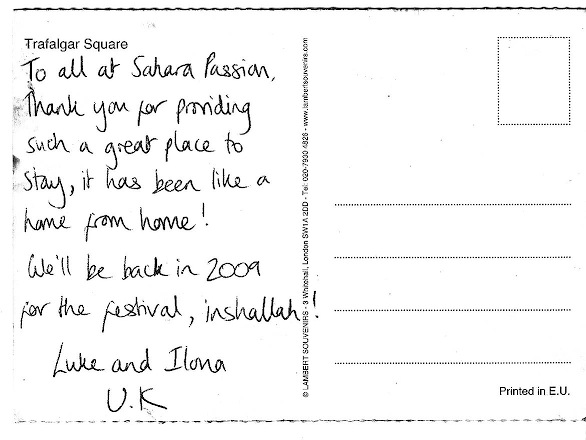 Trafalgar Square
To all at Sahara Passion,
Thank you for providing
such a great place to
stay, it has been like a
home from home!
We'll be back in 2009
for the festival, inshallah!
Luke and Ilona
U.K
© LAMBERT SOUVENIRS - 3 Whitehall, London SW1A 2DD - Tel: 020-7930 4826 - www.lambertsouvenirs.com
Printed in E.U.